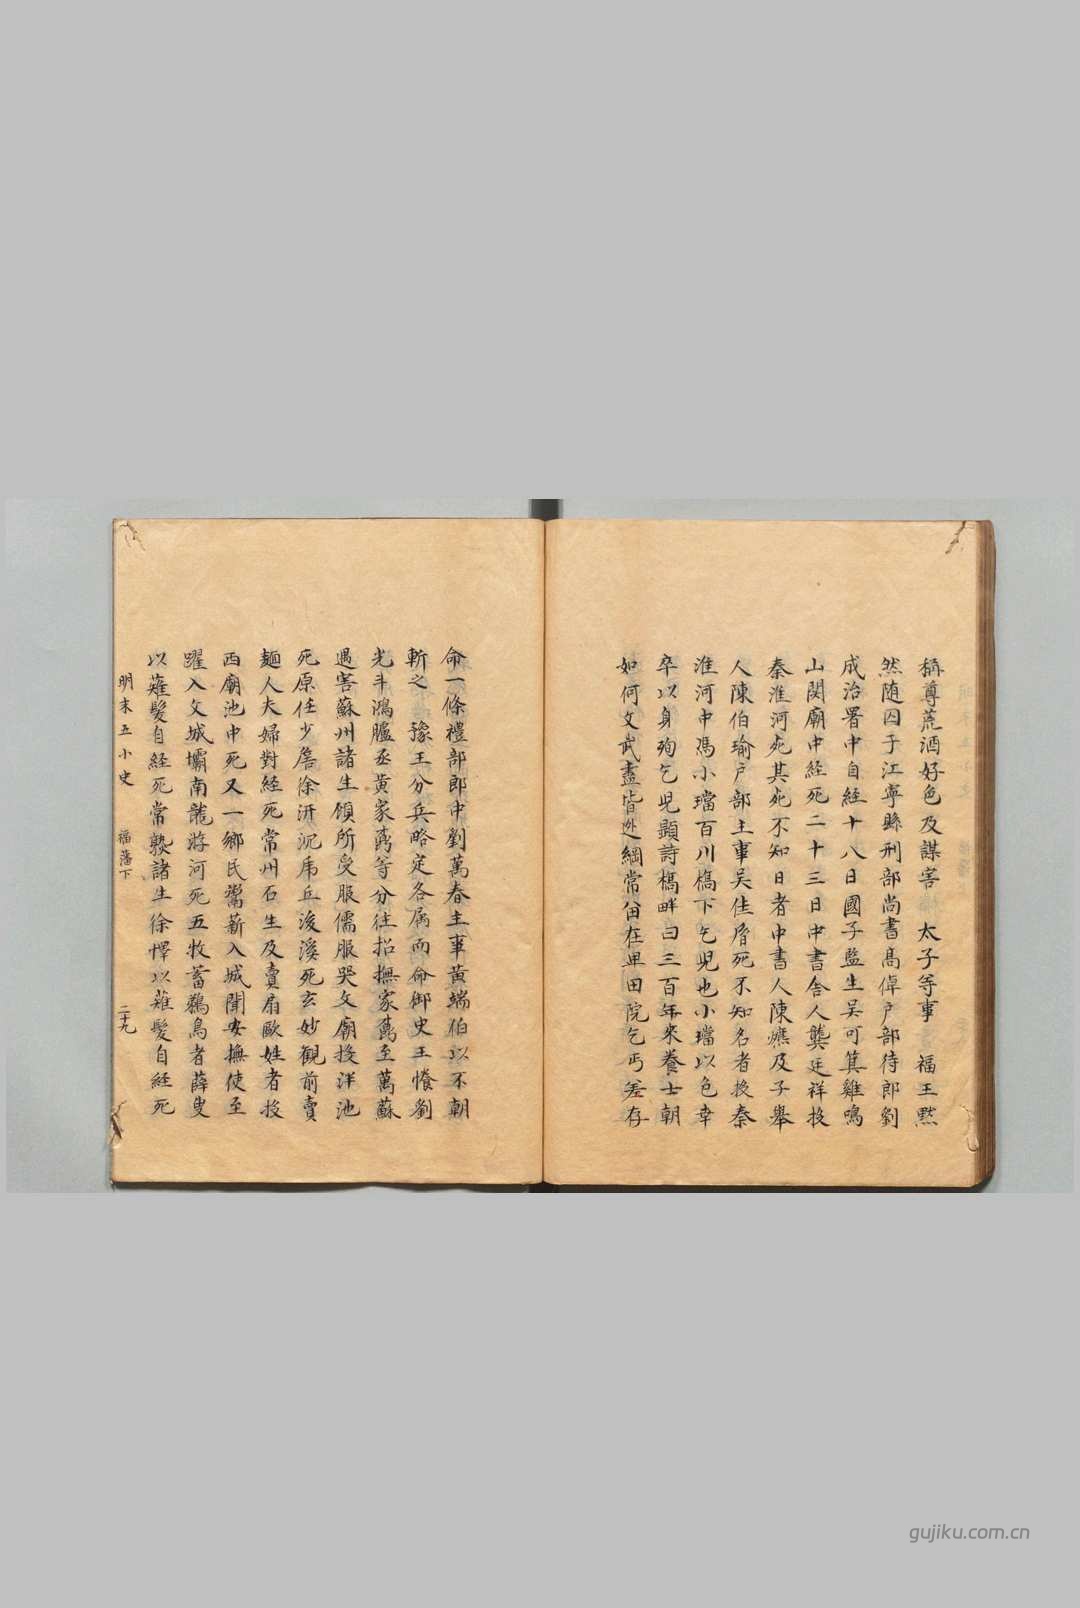 稱尊荒酒好色及謀害　太子等事　福王黙
然随囚于江寧縣刑部尚書髙倬户部待郎劉
成治署中自經十八日國子監生吴可箕雞鳴
山関廟中経死二十三日中書舎人龔廷祥投
秦淮河死其死不知日者中書人陳爊及子舉
人陳伯瑜户部主事吴佳胤死不知名者投秦
淮河中馮小璫百川橋下乞児也小璫以色幸
卒以身殉乞児題詩橋畔曰三百年來養士朝
如何文武盡皆迯綱常畄在卑田院乞丐羞存
命一條禮部郎中劉萬春主事黄端伯以不朝
斬之　豫王分兵略定各属而命御史王懩劉
光斗鴻臚丞黄家鼒等分往招撫家鼒至蘇
遇害蘇州諸生傾所受服儒服哭文廟投泮池
死原任少詹徐汧沉虎丘後溪死玄妙観前賣
麺人夫婦對経死常州石生及賣扇歐姓者投
西廟池中死又一鄉民鬻薪入城聞安撫使至
躍入文城壩南龍游河死五牧蓄鵝鳥者薛叟
以薙髮自経死常熟諸生徐懌以薙髮自経死
明末五小史　福藩下　二十九
gujiku.com.cn